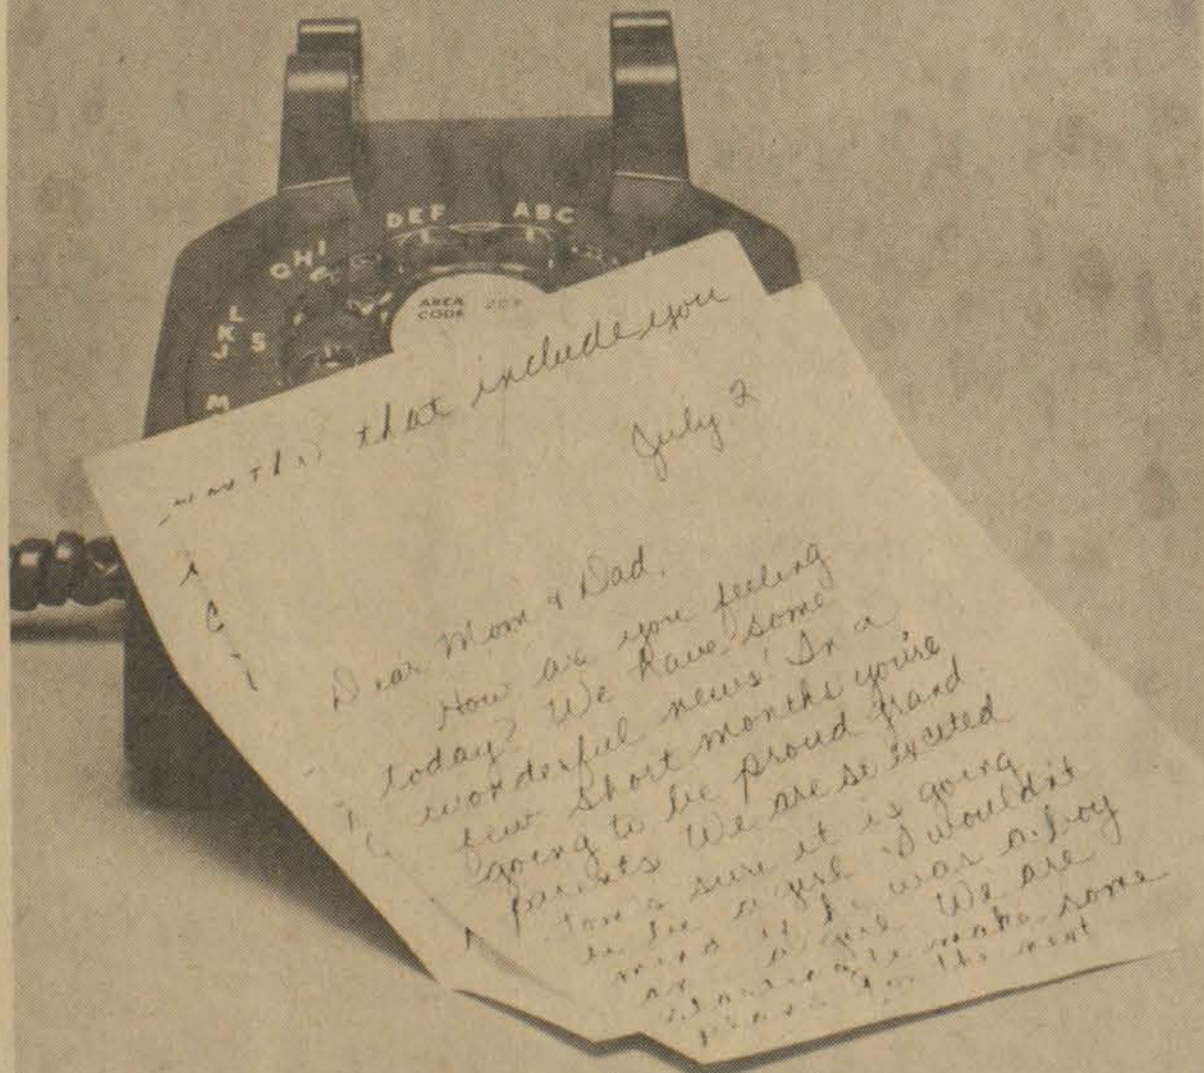 DEF
ABC
GHI
L
K
J 5
M
AREA
CODE
that include you
July 2
Dear Mom & Dad,
How are you feeling
today? We have some
wonderful news! In a
few short months you're
going to be proud grand
parents We are so excited
Tom's sure it is going
to be a girl I wouldn't
mind if he was a boy
or a girl We are
make some
for the next